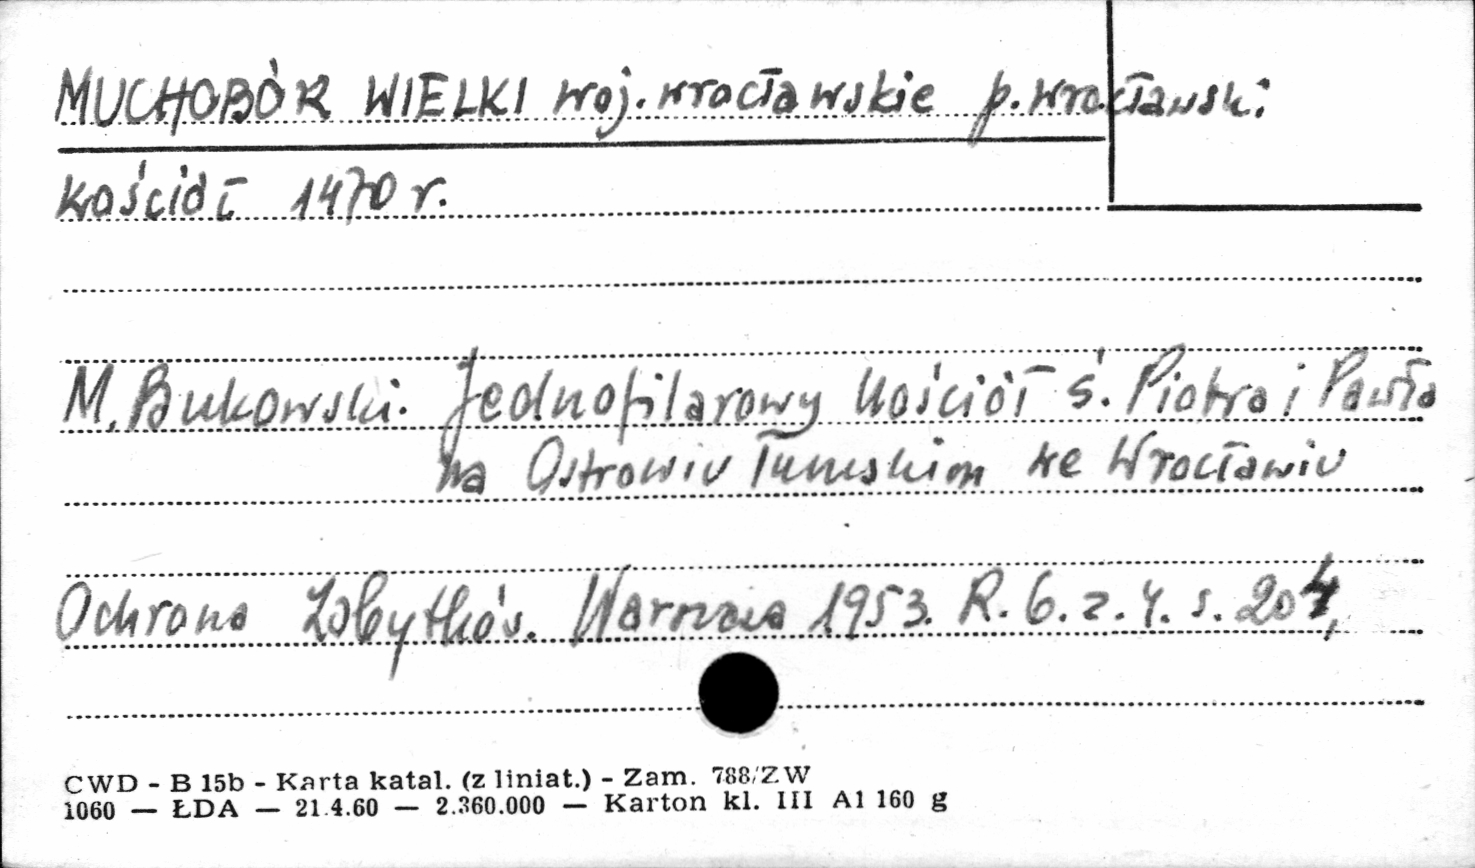 MUCHOBÓR WIELKI woj. wrocławskie p. wrocławski
kościół 1470 r.
M. Bukowski. Jednofilarowy kościół ś. Piotra i Pawła
na Ostrowiu Tumskim we Wrocławiu
Ochrona Zabytków. Warszawa 1953. R. 6. z. 4. s. 204,
CWD - B 15b - Karta katal. (z liniat.) - Zam. 788/ZW
1060 — ŁDA — 21.4.60 — 2.360.000 — Karton kl. III A1 160 g